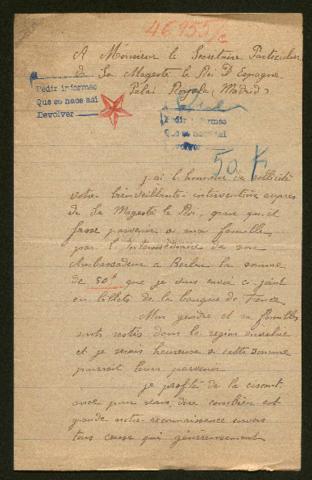 46955/2
A Monsieur le Secretaire Particulier
de Sa Majesté le Roi D'Espagne
Palai Royale (Madrid)
Pedir informes
Que se hace asi
Devolver
Pedir informes
Que se hace asi
Devolver
50 f
j'ai l'honneur de solliciter
votre bienveillante intervention aupres
de Sa Majesté le Roi, pour qu'il
fasse parvenir a ma famille
par l'intermédiaire de son
Ambassadeur a Berlin la somme
de 50f que je vous envoi ci joint
en billets de la banque de France
Mon gendre et sa famille
sont restés dans la region envahie
et je serais heureuse si cette somme
pourrait leurs parvenir
je profite de la circonst
ance pour vous dire combien est
grande notre reconnaissance envers
tous ceux qui généreusement